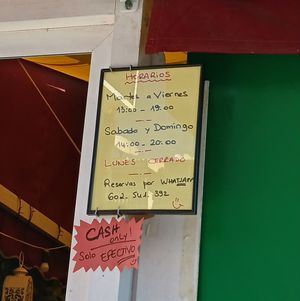 HORARIOS
Martes a Viernes
15:00 - 19:00
Sabado y Domingo
14:00 - 20:00
LUNES CERRADO
Reservas por WHATSAPP
602 541 392
CASH
only!
Solo EFECTIVO